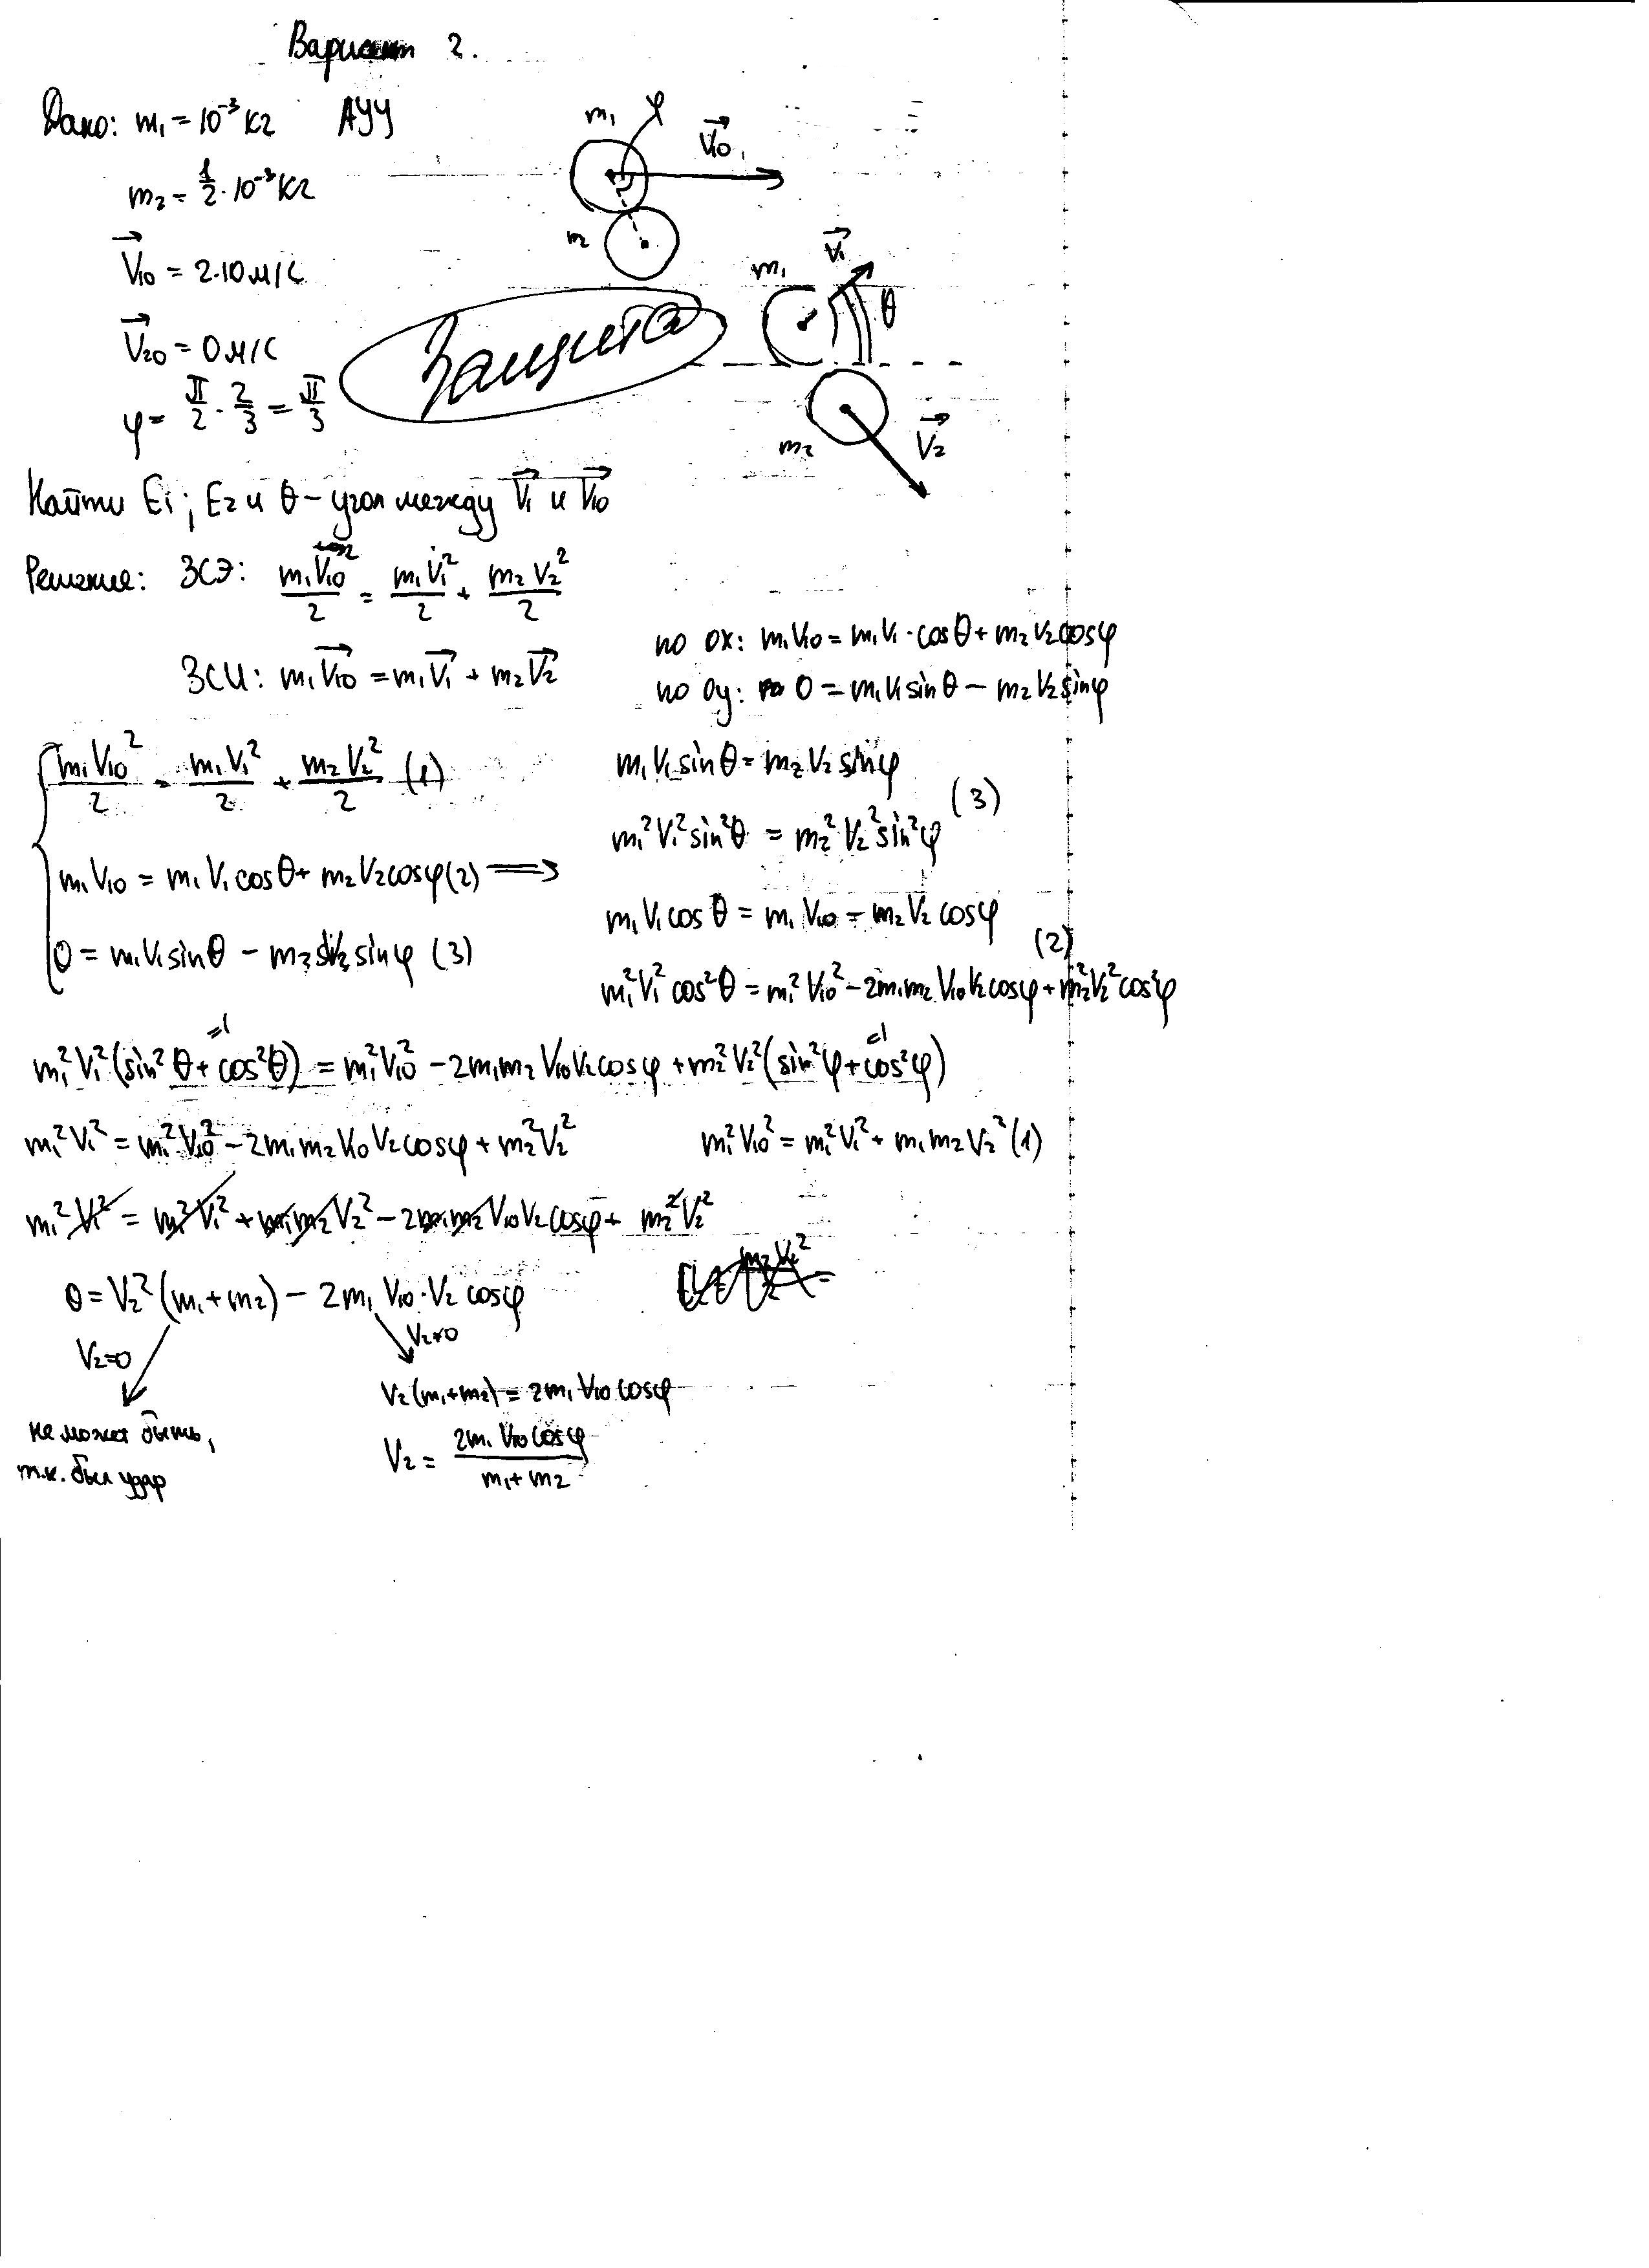 Вариант 2.
Дано: m₁ = 10⁻³ кг АУУ
m₂ = 1/2 · 10⁻³ кг
V₁₀ = 2·10 м/с
V₂₀ = 0 м/с
φ = π/2 · 2/3 = π/3
m₁ φ V₁₀
m₂
m₁ V₁ θ
m₂ V₂
Защита
Найти E₁; E₂ и θ – угол между V₁ и V₁₀
Решение: ЗСЭ: m₁V₁₀²/2 = m₁V₁²/2 + m₂V₂²/2
ЗСИ: m₁V₁₀ = m₁V₁ + m₂V₂
по ox: m₁V₁₀ = m₁V₁·cosθ + m₂V₂cosφ
по oy: 0 = m₁V₁sinθ − m₂V₂sinφ
m₁V₁₀²/2 = m₁V₁²/2 + m₂V₂²/2 (1)
m₁V₁₀ = m₁V₁cosθ + m₂V₂cosφ (2) ⟹
0 = m₁V₁sinθ − m₂V₂sinφ (3)
m₁V₁sinθ = m₂V₂sinφ
m₁²V₁²sin²θ = m₂²V₂²sin²φ (3)
m₁V₁cosθ = m₁V₁₀ − m₂V₂cosφ
m₁²V₁²cos²θ = m₁²V₁₀² − 2m₁m₂V₁₀V₂cosφ + m₂²V₂²cos²φ (2)
m₁²V₁²(sin²θ + cos²θ) = m₁²V₁₀² − 2m₁m₂V₁₀V₂cosφ + m₂²V₂²(sin²φ + cos²φ)
=1 =1
m₁²V₁² = m₁²V₁₀² − 2m₁m₂V₁₀V₂cosφ + m₂²V₂² m₁²V₁₀² = m₁²V₁² + m₁m₂V₂² (1)
m₁²V₁² = m₁²V₁² + m₁m₂V₂² − 2m₁m₂V₁₀V₂cosφ + m₂²V₂²
0 = V₂²(m₁ + m₂) − 2m₁V₁₀·V₂cosφ
V₂=0 V₂≠0
не может быть,
т.к. был удар
V₂(m₁+m₂) = 2m₁V₁₀cosφ
V₂ = 2m₁V₁₀cosφ/(m₁+m₂)